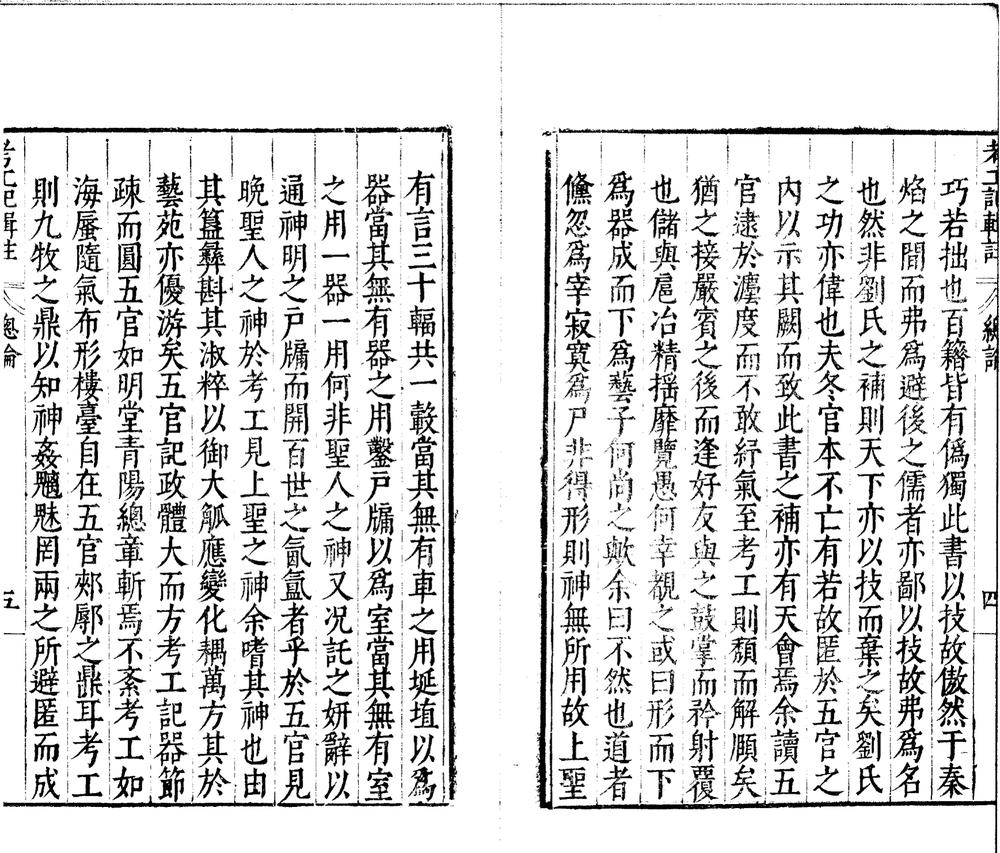 巧若拙也百籍皆有僞獨此書以技故傲然于秦
焰之間而弗爲避後之儒者亦鄙以技故弗爲名
也然非劉氏之補則天下亦以技而棄之矣劉氏
之功亦偉也夫冬官本不亡有若故匿於五官之
內以示其闕而致此書之補亦有天會焉余讀五
官逮於灋度而不敢紓氣至考工則頹而解頤矣
猶之接嚴賓之後而逢好友與之鼓掌而矜射覆
也儲與扈冶精揺靡覽愚何幸覩之或曰形而下
爲器成而下爲藝子何尚之歟余曰不然也道者
儵忽爲宰寂寞爲尸非得形則神無所用故上聖
四
有言三十輻共一轂當其無有車之用埏埴以爲
器當其無有器之用鑿戸牖以爲室當其無有室
之用一器一用何非聖人之神又况託之姸辭以
通神明之戸牖而開百世之氤氳者乎於五官見
晚聖人之神於考工見上聖之神余嗜其神也由
其簋彝斟其淑粹以御大觚應變化耦萬方其於
藝苑亦優游矣五官記政體大而方考工記器節
疎而圓五官如明堂青陽總章斬焉不紊考工如
海蜃隨氣布形樓臺自在五官郟鄏之鼎耳考工
則九牧之鼎以知神姦魑魅罔兩之所避匿而成
考工記輯註
總論
五